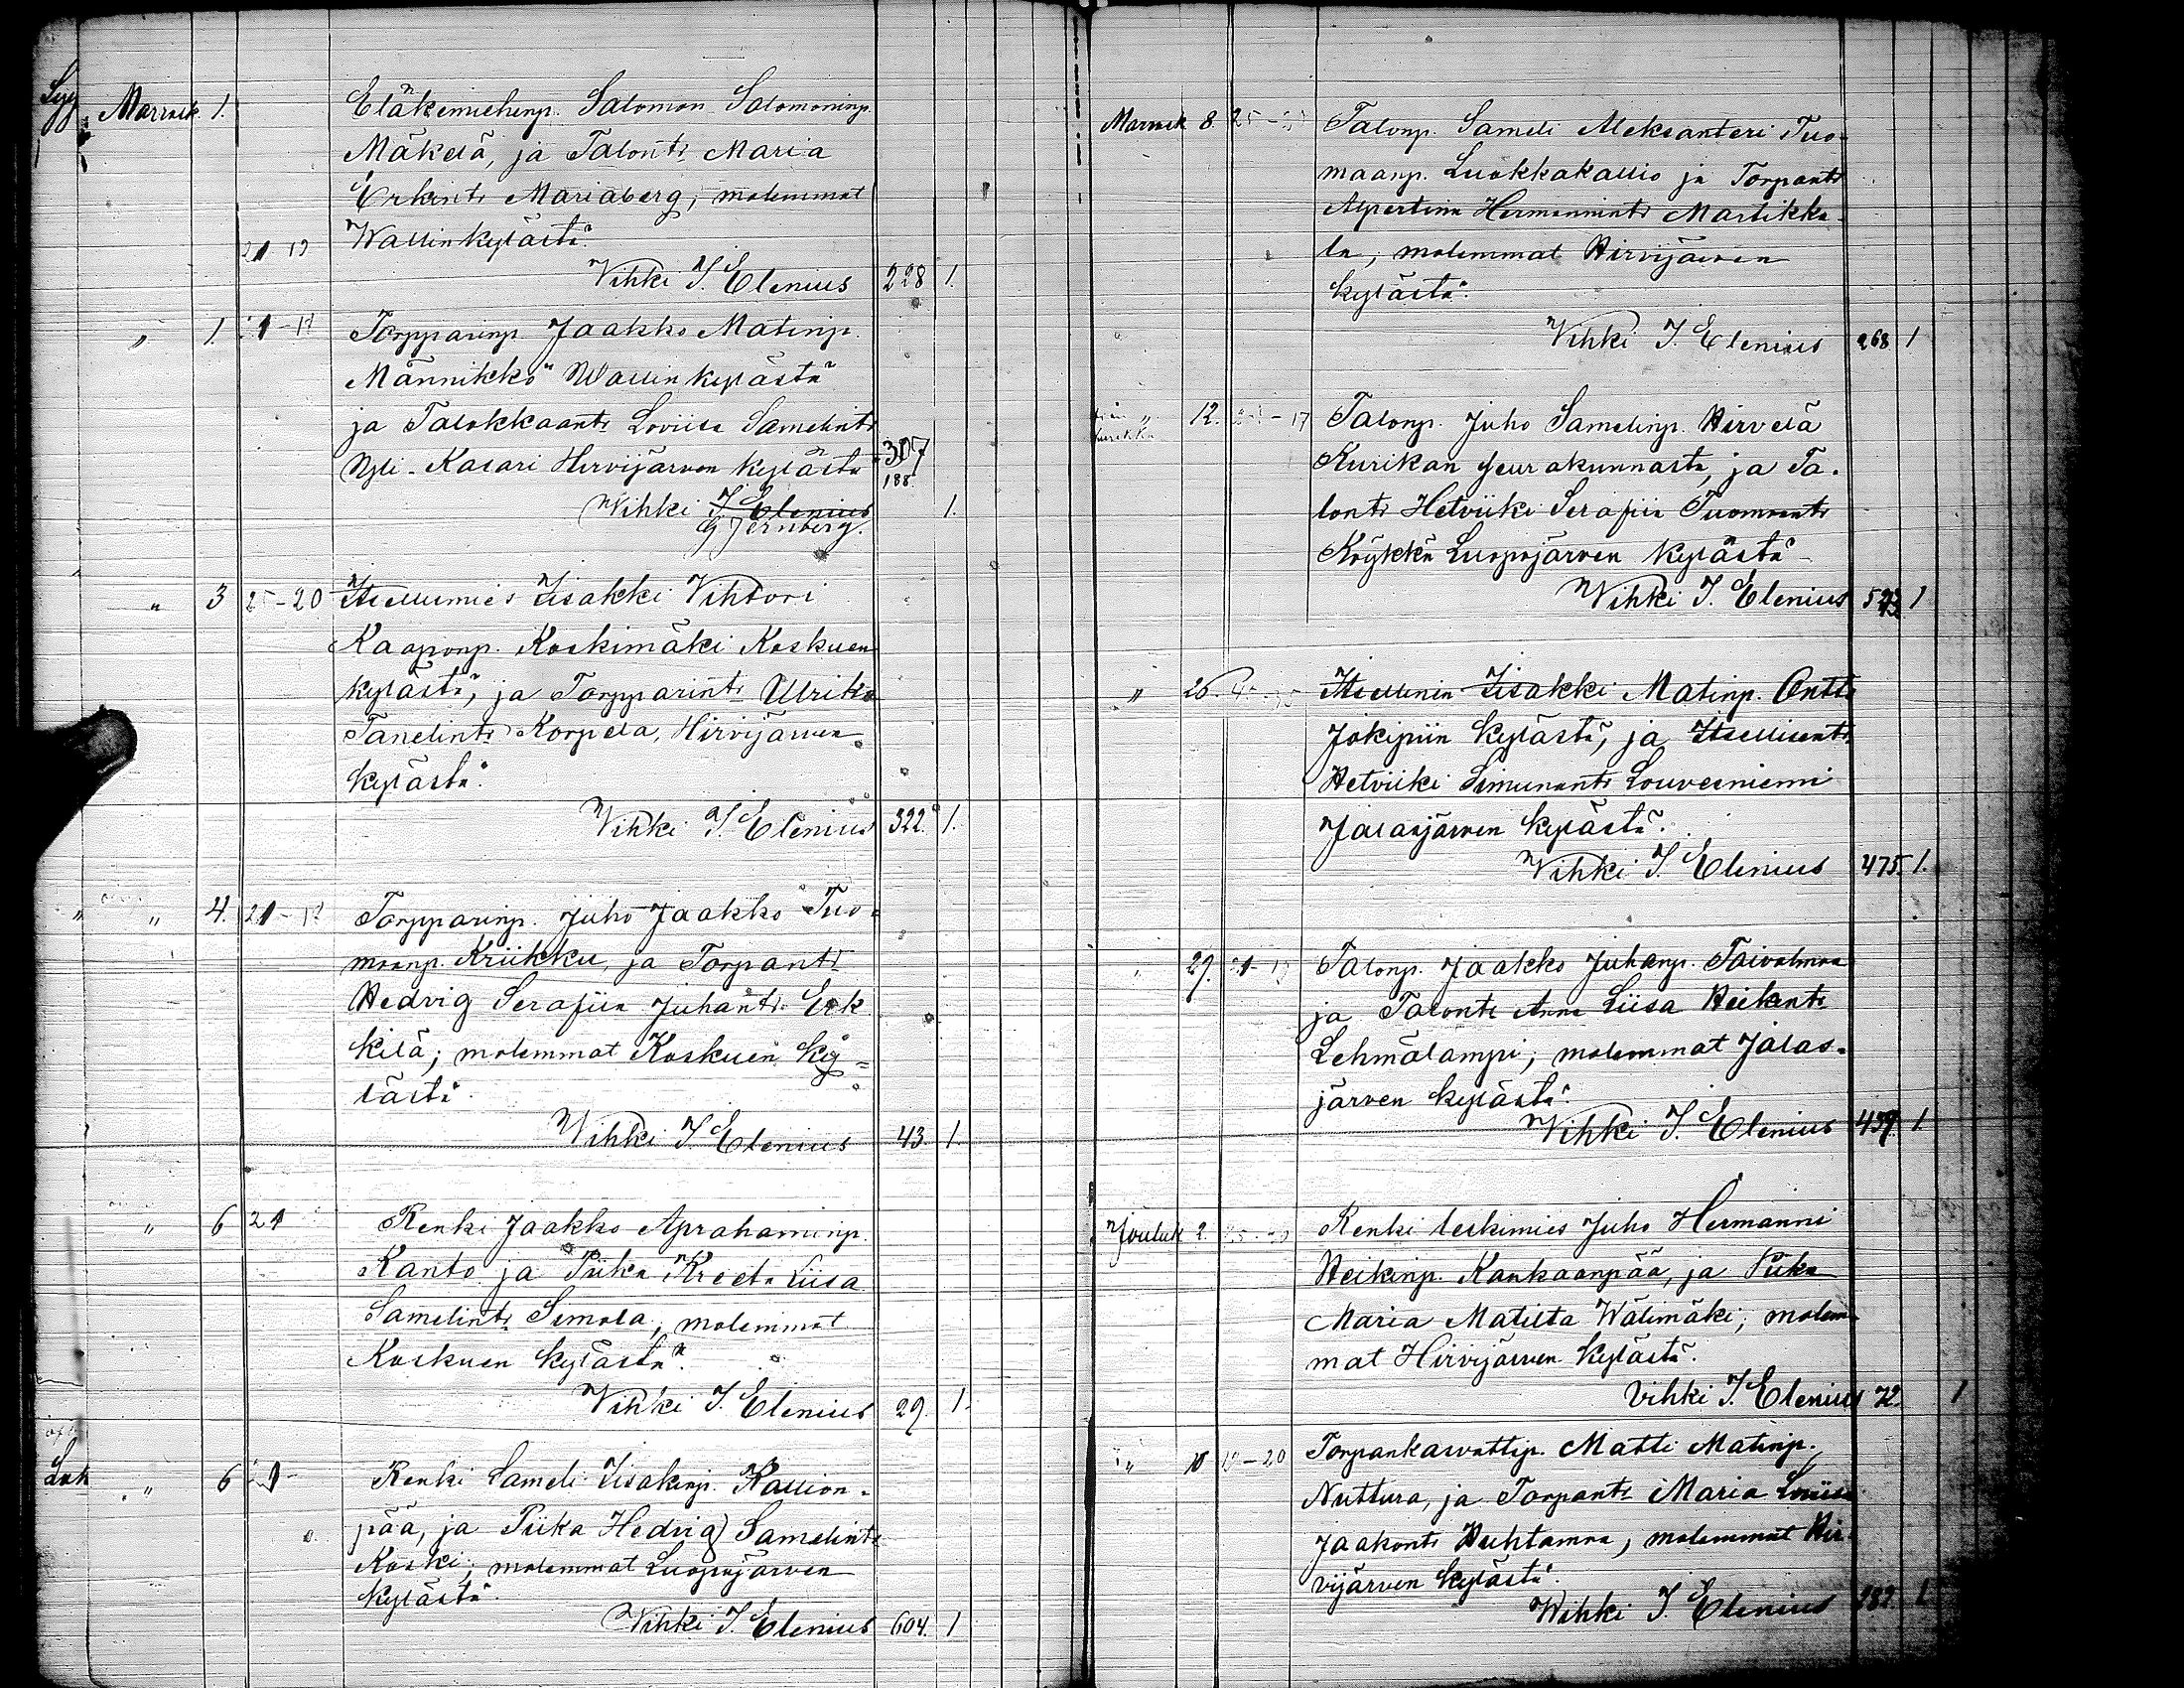 Syy Marrask. 1. Eläkemiehenp. Salomon Salomoninp.
Mäkelä, ja Talont: Maria
Erkint: Mariaberg; molemmat
21-17 Wallinkylästä.
Vihki I. Elenius 228 1.
" 1. 21-17 Torpparinp. Jaakko Matinp.
Männikkö Wallinkylästä
ja Talokkaant: Loviisa Samelint:
Yli-Kasari Hirvijärven kylästä 307
188
Vihki I. Elenius 1.
G Jernberg.
" 3 25-20 Itsellismies Iisakki Vihtori
Kaaponp. Koskimäki Koskuen
kylästä, ja Torpparint: Ulriika
Tanelint: Korpela, Hirvijärven
kylästä.
Vihki I. Elenius 322. 1.
" " 4. 21-17 Torpparinp. Juho Jaakko Tuo-
maanp. Kriikku, ja Torpant:
Hedvig Serafiia Juhant: Erk-
kilä; molemmat Koskuen ky=
lästä.
Vihki I. Elenius 43. 1.
" 6 21 Renki Jaakko Aprahaminp.
Kanto ja Piika Kreeta Liisa
Samelint: Simola, molemmat
Koskuen kylästä.
Vihki I. Elenius 29. 1.
Lok " 6 21- Renki Sameli Iisakinp. Kallion-
pää, ja Piika Hedvig Samelint:
Koski; molemmat Luopajärven
kylästä.
Vihki I. Elenius 604. 1
Marrask 8. 25- Talonp. Sameli Aleksanteri Tuo-
maanp. Luokkakallio ja Torpant:
Alpertina Hermannint: Martikka-
la, molemmat Hirvijärven
kylästä.
Vihki I. Elenius 268 1
" 12. 21-17 Talonp. Juho Samelinp. Hirvelä
Kurikka
Kurikan seurakunnasta, ja Ta-
lont: Hetviiki Serafiia Tuomaant:
Köykkä Luopajärven kylästä
Vihki I. Elenius 1
" 26. Itsellisen Iisakki Matinp. Antti
Jokipiin kylästä, ja Itsellisent:
Hetviiki Simunant: Louvesniemi
Jalasjärven kylästä.
Vihki I. Elenius 475. 1.
" 29. 21-17 Talonp. Jaakko Juhanp. Taivalmaa
ja Talont: Anna Liisa Heikint:
Lehmälampi; molemmat Jalas-
järven kylästä.
Vihki I. Elenius 439. 1
Jouluk 2. Renki leskimies Juho Hermanni
Heikinp. Kankaanpää, ja Piika
Maria Matilta Wälimäki; molem-
mat Hirvijärven kylästä.
Vihki I. Elenius 72. 1
" 10 -20 Torpankasvattip. Matti Matinp.
Nuttura, ja Torpant: Maria Loviisa
Jaakont: Huhtamaa, molemmat Hir-
vijärven kylästä.
Wihki I. Elenius 1